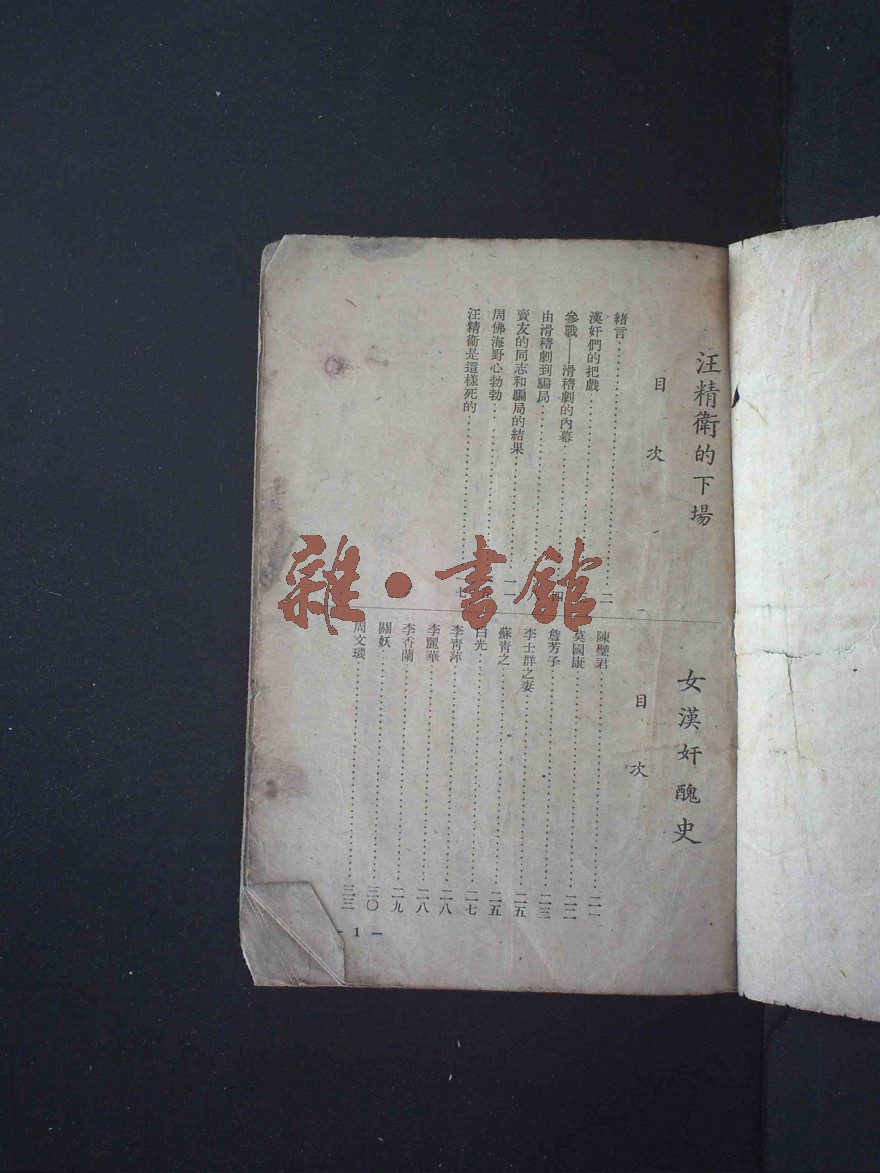 汪精衛的下場
目次
緒言……二
漢奸們的把戲……
參戰——滑稽劇的內幕……四
由滑稽劇到騙局……八
賣友的同志和騙局的結果……一一
周佛海野心勃勃……
汪精衛是這樣死的……一七
女漢奸醜史
目次
陳璧君……二一
莫國康……二二
詹芳子……二三
李士群之妻……二五
蘇青之……二五
白光……二七
李青萍……二八
李麗華……二八
李香蘭……二九
關妖……三〇
周文璣……三三
- 1 -
雜·書館